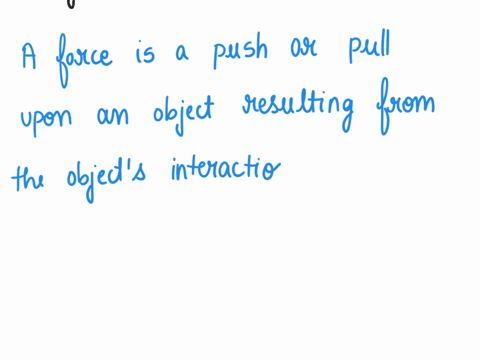 A force is a push or pull
upon an object resulting from
the object's interactio